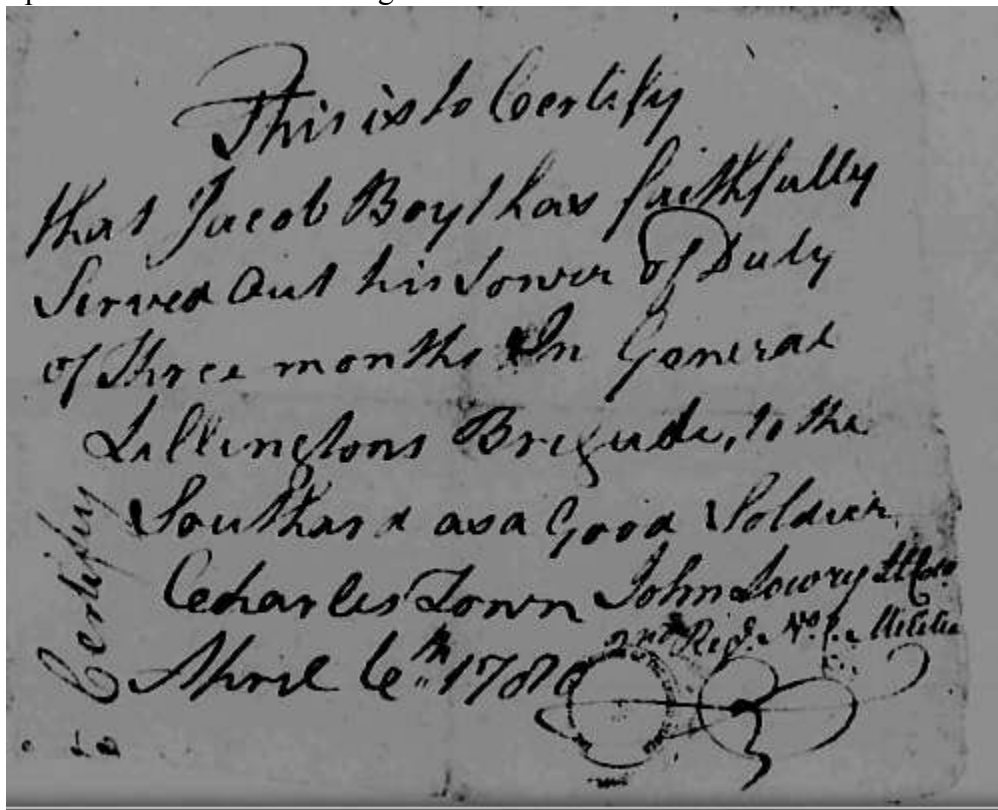 This is to Certify
that Jacob Boyt has faithfully
Served Out his Tower of Duty
of Three months In General
Lillingtons Brigade, to the
Southard as a Good Soldier
Charles Town John Lowry Lt Colo
April 6th 1780 2nd Regt No. C. Militia
to Certify